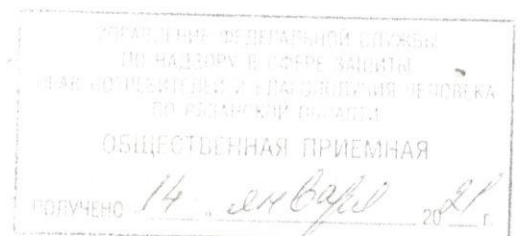 УПРАВЛЕНИЕ ФЕДЕРАЛЬНОЙ СЛУЖБЫ
ПО НАДЗОРУ В СФЕРЕ ЗАЩИТЫ
ПРАВ ПОТРЕБИТЕЛЕЙ И БЛАГОПОЛУЧИЯ ЧЕЛОВЕКА
ПО РЯЗАНСКОЙ ОБЛАСТИ
ОБЩЕСТВЕННАЯ ПРИЕМНАЯ
ПОЛУЧЕНО 14 " января 2021 г.